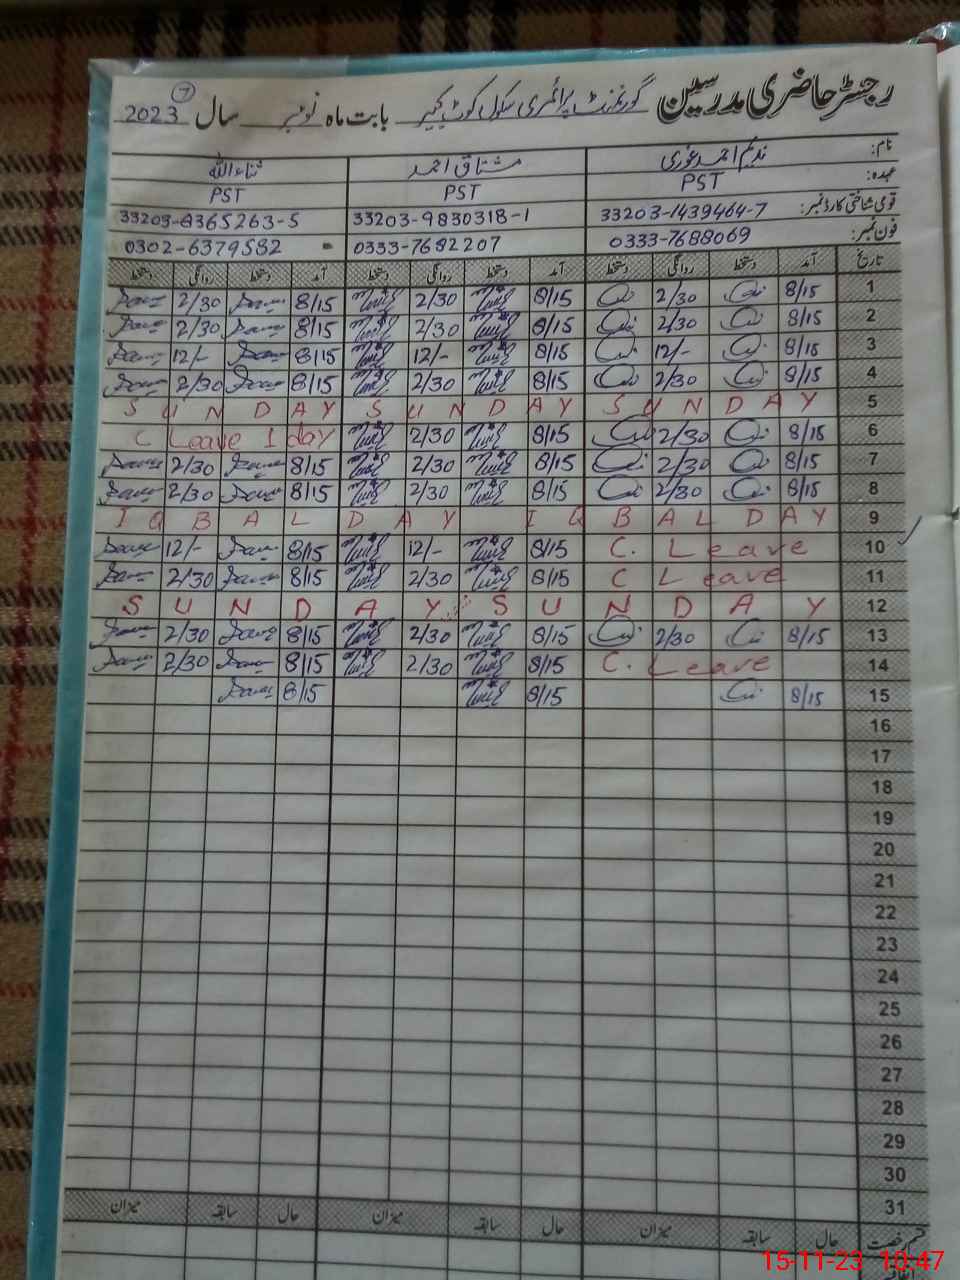 رجسٹر حاضری مدرسین گورنمنٹ پرائمری سکول کوٹ بابت ماہ نومبر سال 2023 7
نام: ندیم احمد غوری مشتاق احمد ثناء اللہ
عہدہ: PST PST PST
قومی شناختی کارڈ نمبر: 33203-1439464-7 33203-9830318-1 33203-8365263-5
فون نمبر: 0333-7688069 0333-7682207 0302-6379582
تاریخ آمد دستخط روانگی دستخط آمد دستخط روانگی دستخط آمد دستخط روانگی دستخط
1 8/15 2/30 8/15 2/30 8/15 2/30
2 8/15 2/30 8/15 2/30 8/15 2/30
3 8/15 12/- 8/15 12/- 8/15 12/-
4 8/15 2/30 8/15 2/30 8/15 2/30
SUNDAY SUNDAY SUNDAY 5
C Leave 1 day 2/30 8/15 2/30 8/15 6
7 8/15 2/30 8/15 2/30 8/15 2/30
8 8/15 2/30 8/15 2/30 8/15 2/30
IQBAL DAY IQBAL DAY 9
12/- 8/15 12/- 8/15 C. Leave 10
2/30 8/15 2/30 8/15 C Leave 11
SUNDAY SUNDAY 12
13 8/15 2/30 8/15 2/30 8/15 2/30
2/30 8/15 2/30 8/15 C. Leave 14
15 8/15 8/15 8/15
16
17
18
19
20
21
22
23
24
25
26
27
28
29
30
31
قسم رخصت حال سابقہ میزان حال سابقہ میزان حال سابقہ میزان
15-11-23 10:47